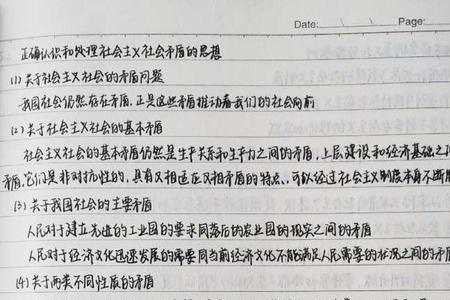 Date: Page:
正确认识和处理社会主义社会矛盾的思想
(1) 关于社会主义社会的矛盾问题
我国社会仍然存在矛盾，正是这些矛盾推动着我们的社会向前
(2) 关于社会主义社会的基本矛盾
社会主义社会的基本矛盾仍然是生产关系和生产力之间的矛盾，上层建设和经济基础之间
矛盾，它们是非对抗性的，具有又相适应又相矛盾的特点，可以经过社会主义制度本身不断
(3) 关于我国社会的主要矛盾
人民对于建立先进的工业国的要求同落后的农业国的现实之间的矛盾
人民对于经济文化迅速发展的需要同当前经济文化不能满足人民需要的状况之间的矛
(4) 关于两类不同性质的矛盾